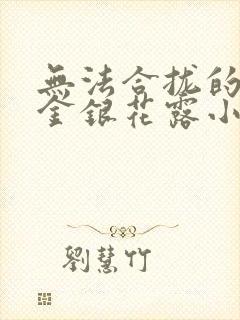 無法合拢的
金銀花露小
劉慧竹